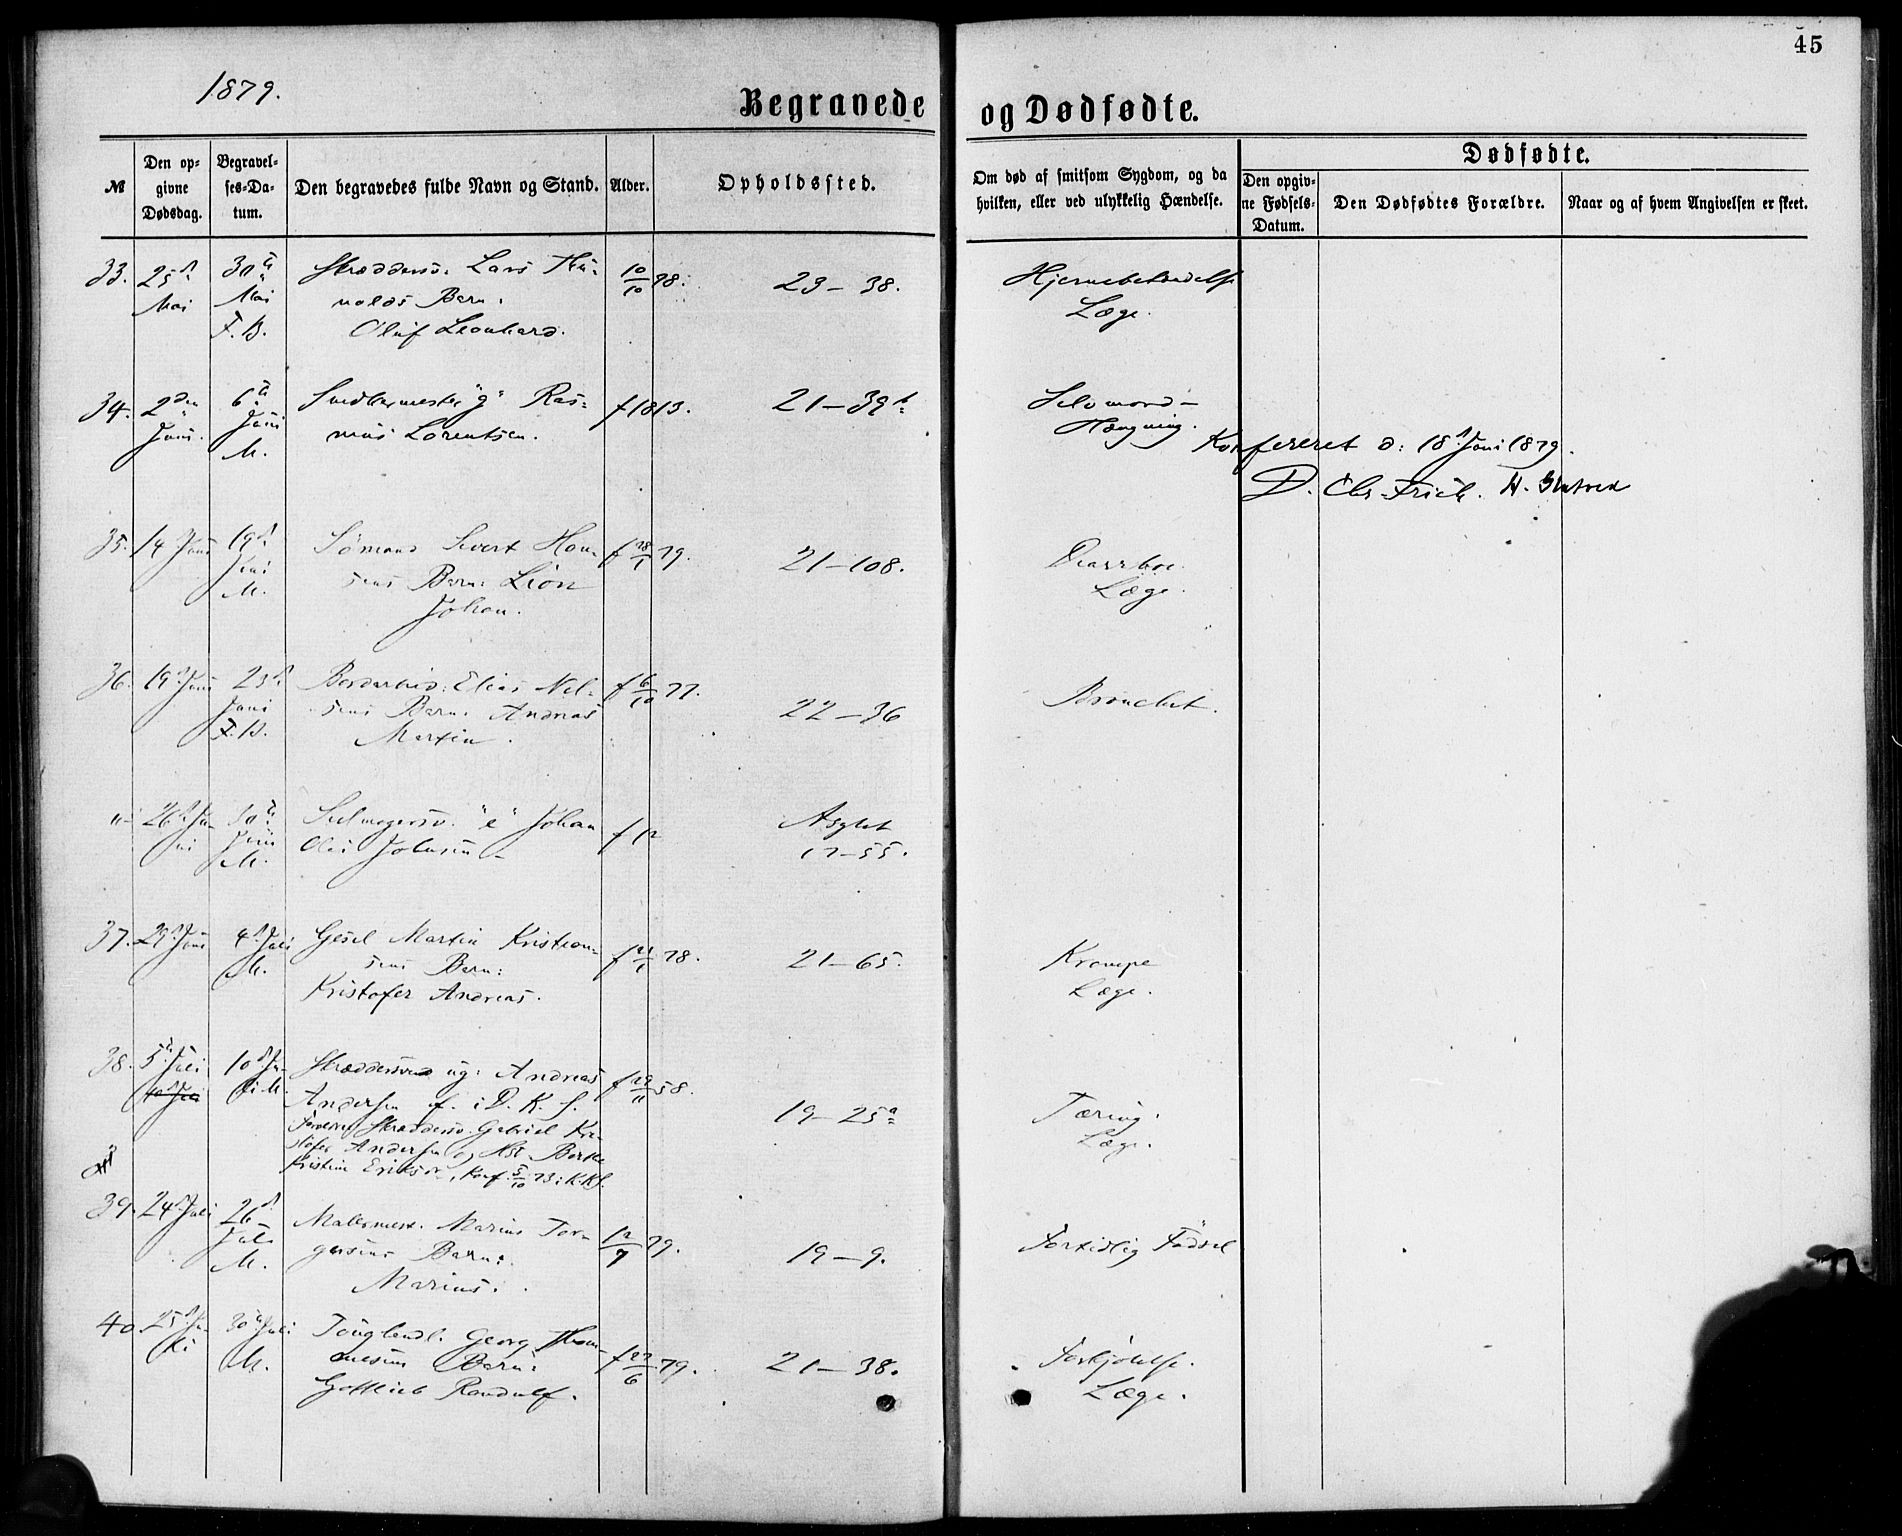 45
1879.
Begravede og Dødfødte.
№
Den opgivne Dødsdag.
Begravelses-Datum.
Den begravedes fulde Navn og Stand.
Alder.
Opholdssted.
Om død af smitsom Sygdom, og da hvilken, eller ved ulykkelig Hændelse.
Dødfødte.
Den opgivne Fødsels-Datum.
Den Dødfødtes Forældre.
Naar og af hvem Angivelsen er skeet.
33. 25 Mai 30 Mai F. B.
Skræddersv. Lars
Barn:
Oluf Leonhard.
10/10 78. 23–38.
Læge.
34. 2den Juni. 6 Juni M.
Ras-
mus Lorentsen.
f 1813. 21–39
Selvmord –
Hængning.
Konfereret d: 18 Juni 1879.
D. Chr. Frich.
35. 14 Juni 19 Juni M.
Sømand Sivert Han-
sens Barn: Lion
Johan.
f 28/1 79. 21–108.
Læge.
36. 19 Juni 23 Juni F. B.
Elias Nil-
sens Barn: Andreas
Martin.
f 6/10 77. 22–36
Bronchit.
26 Juni 30 Juni M.
"e" Johan
f 12
Asylet
17–55.
37. 29 Juni 4 Juli M.
Gesel Martin Kristian-
sens Barn:
Kristofer Andreas.
78. 21–65.
Krampe
Læge.
38. 5 Juli 10 Juli M.
Skræddersvend ug: Andreas
Andersen f. i D. K. S.
Skræddersv. Gabriel Kri-
stofer Andersen og Hst.
Kristine Eriksdr., Konf. 5/10 73 i K.K.S.
f 29/11 58. 19–25a
Tæring.
Læge.
39. 24 Juli 26 Juli M.
Malermest. Marius Tor-
gersens Barn:
Marius.
12/7 79. 19–9.
Fortidlig Födsel
40 25 Juli 30 Juli M.
Georg Thom-
mesens Barn:
Gottlieb Randulf.
f 22/6 79. 21–38.
Forkjølelse.
Læge.